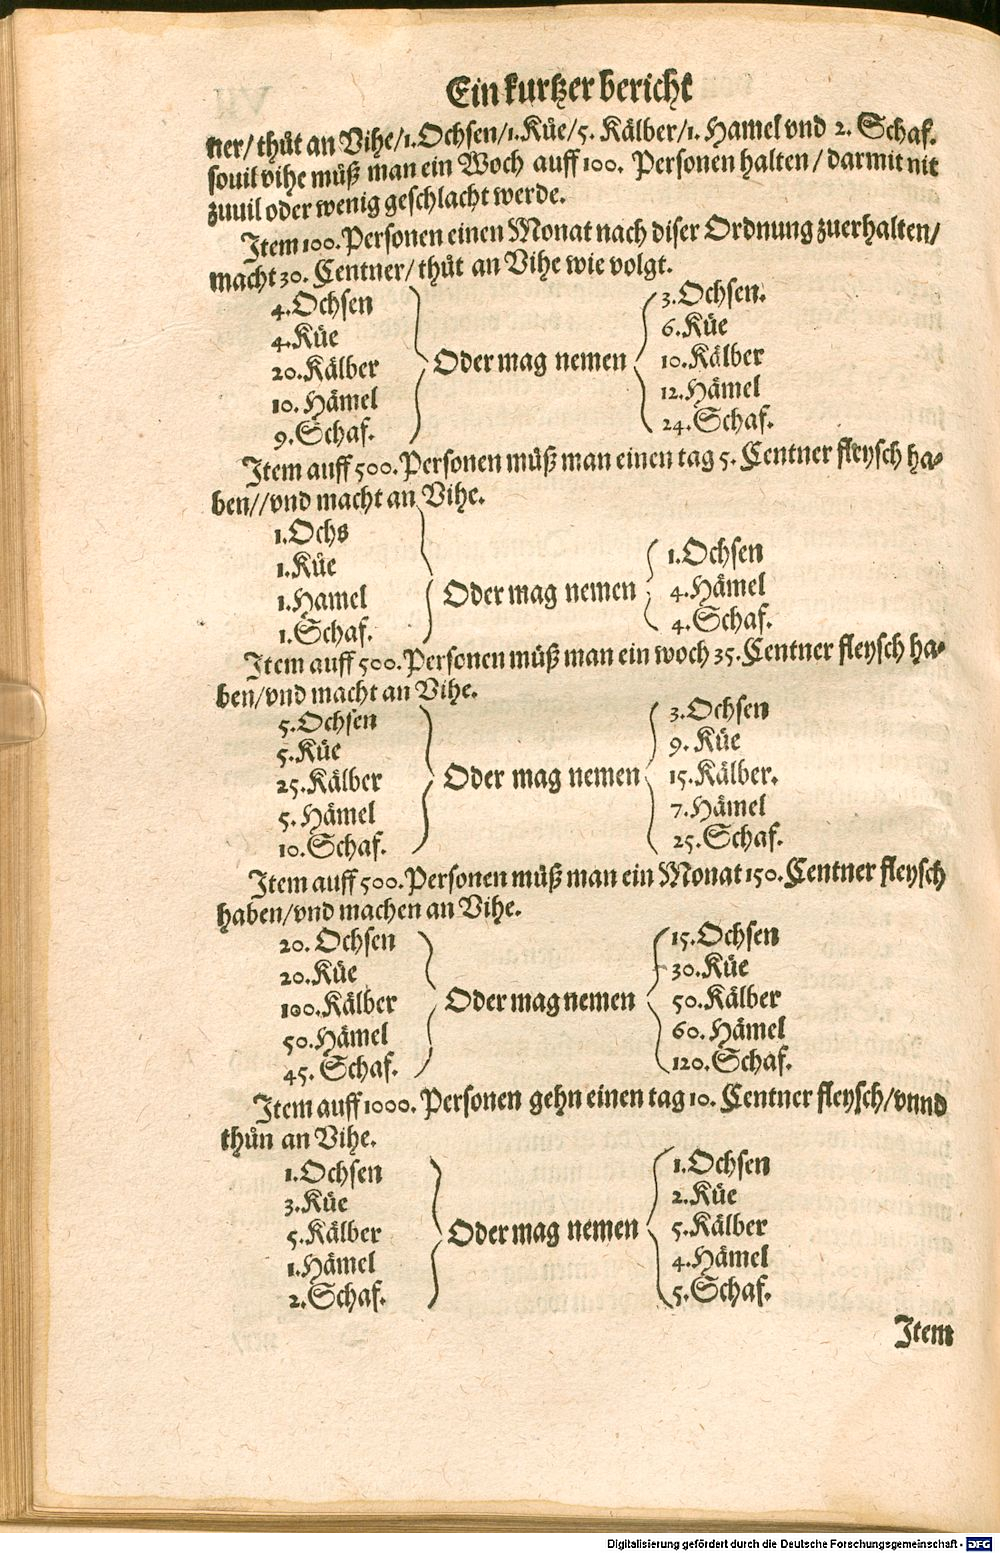 Ein kurtzer bericht
ner/ thůt an Vihe/1. Ochsen/1. Küe/5. Kälber/1. Hamel vnd 2. Schaf.
souil vihe můß man ein Woch auff 100. Personen halten / darmit nit
zuuil oder wenig geschlacht werde.
Item 100. Personen einen Monat nach diser Ordnung zuerhalten/
macht 30. Centner/ thůt an Vihe wie volgt.
4. Ochsen
4. Küe
20. Kälber
10. Hämel
9. Schaf.
Oder mag nemen
3. Ochsen.
6. Küe
10. Kälber
12. Hämel
24. Schaf.
Item auff 500. Personen můß man einen tag 5. Centner fleysch ha-
ben//vnd macht an Vihe.
1. Ochs
1. Küe
1. Hamel
1. Schaf.
Oder mag nemen
1. Ochsen
4. Hämel
4. Schaf.
Item auff 500. Personen můß man ein woch 35. Centner fleysch ha-
ben/vnd macht an Vihe.
5. Ochsen
5. Küe
25. Kälber
5. Hämel
10. Schaf.
Oder mag nemen
3. Ochsen
9. Küe
15. Kälber.
7. Hämel
25. Schaf.
Item auff 500. Personen můß man ein Monat 150. Centner fleysch
haben/vnd machen an Vihe.
20. Ochsen
20. Küe
100. Kälber
50. Hämel
45. Schaf.
Oder mag nemen
15. Ochsen
30. Küe
50. Kälber
60. Hämel
120. Schaf.
Item auff 1000. Personen gehn einen tag 10. Centner fleysch/vnnd
thůn an Vihe.
1. Ochsen
3. Küe
5. Kälber
1. Hämel
2. Schaf.
Oder mag nemen
1. Ochsen
2. Küe
5. Kälber
4. Hämel
5. Schaf.
Item
Digitalisierung gefördert durch die Deutsche Forschungsgemeinschaft - DFG